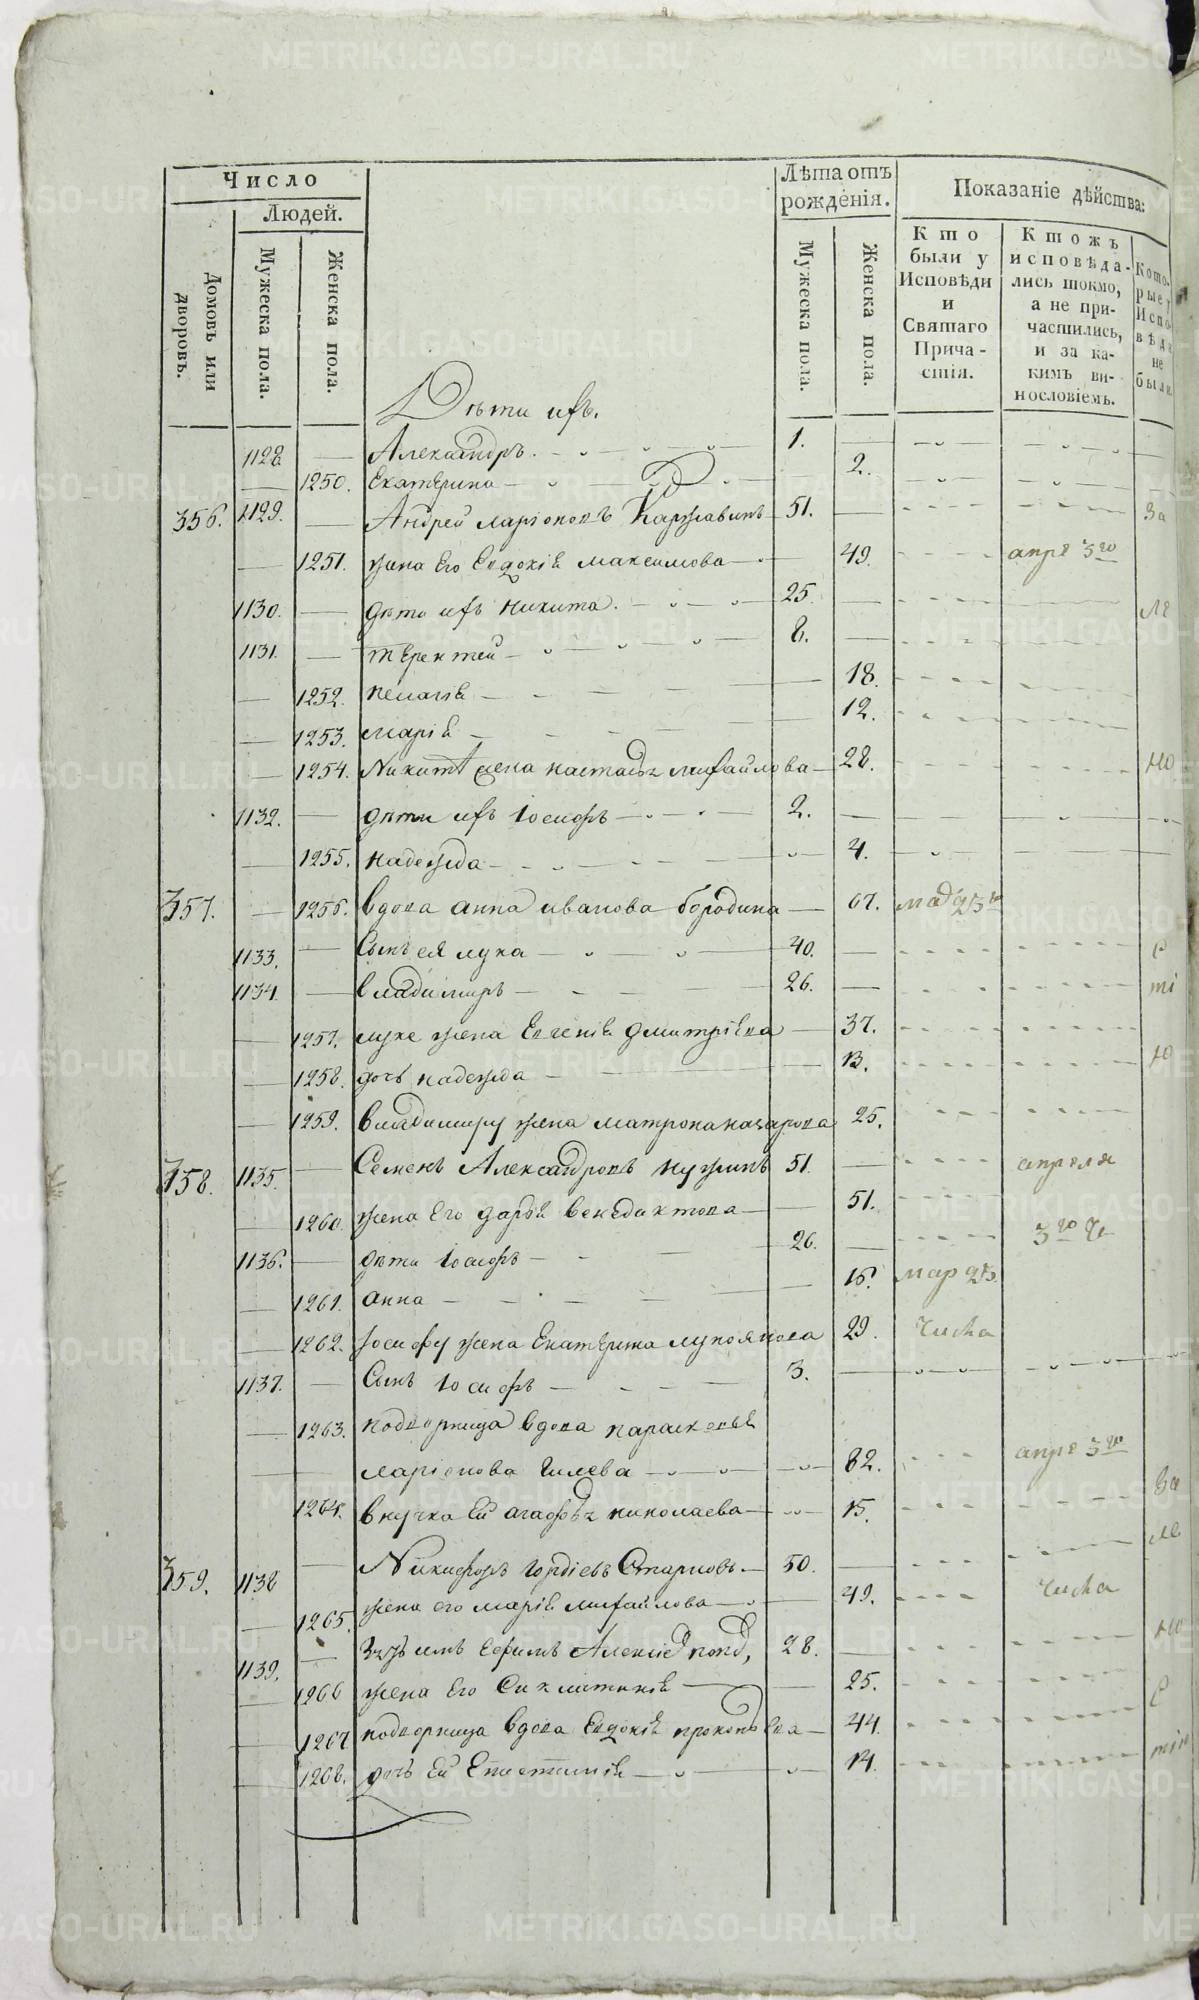 Число
Людей.
Домовъ или дворовъ.
Мужеска пола.
Женска пола.
Лѣта отъ рожденія.
Мужеска пола.
Женска пола.
Показаніе дѣйства:
Кто были у Исповѣди и Святаго Причастія.
Ктожъ исповѣдались токмо, а не причастились, и за какимъ винословіемъ.
Которые у Исповѣди не были
Дѣти ихъ.
1128 — Александръ. — 1. —
— 1250. Екатерина — 2.
356. 1129. — Андрей Ларіоновъ Каржавинъ — 51. — За
— 1251. жена Его Евдокія Максимова — 49. апре 3го
1130. — дѣти ихъ Никита. — 25. — ле
1131. — Терентей — 8. —
— 1252. Пелагія — 18.
— 1253. Марія — 12.
— 1254. Никитѣ жена Настасья Михайлова — 28. но
1132. — дѣти ихъ Іосифъ — 2. —
— 1255. Надежда — 4.
357. — 1256. вдова Анна Иванова Бородина — 67.
1133. — Сынъ ея Лука — 40. — с
1134. — Владимиръ — 26. — ті
— 1257. Луке жена Евгенія Дмитріева — 37.
— 1258. дочь Надежда — 13. ю
— 1259. Владимиру жена Матрона Назарова 25.
358. 1135. — Семенъ Александровъ 51. — апреля
— 1260. жена Его Дарья Венедиктова — 51.
1136. — дѣти Іосифъ — 26. — 3го Че
— 1261. Анна — 15. мар 25.
— 1262. Іосифу жена Екатерина 29. Числа
1137. — Сынъ Іосифъ — 3. —
— 1263. подворница вдова Параскевья
Ларіонова Гилева — 82. апре 3го
1264. внучка Ей Агафья Николаева — 15. За
359. 1138 — Никифоръ Гордіевъ Старковъ. — 50. — ле
1265. жена его Марія Михайлова — 49. Числа
1139. — Зять имъ Ефимъ 28. — но
— 1266 жена Его — 25.
— 1267 подворница вдова Евдокія Прокопьева — 44. с
— 1268. дочь Ей Епистимія — 14. тію
METRIKI.GASO-URAL.RU